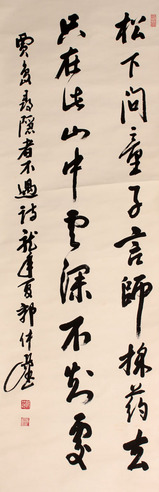 松下问童子言師採药去
只在此山中云深不知处
賈岛尋隱者不遇詩龍年夏郭仲